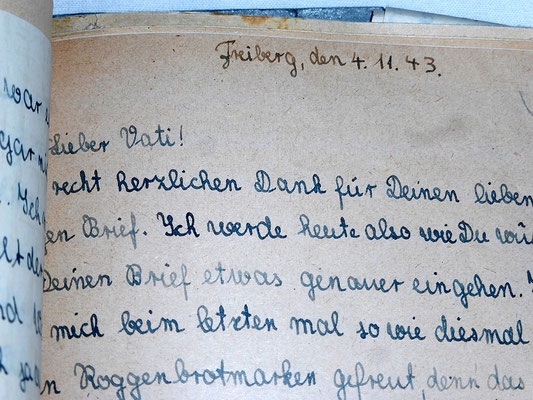 Freiberg, den 4. 11. 43.
Lieber Vati!
recht herzlichen Dank für Deinen lieben
en Brief. Ich werde heute also wie Du wü
Deinen Brief etwas genauer eingehen.
mich beim letzten mal so wie diesmal
n Roggenbrotmarken gefreut, denn das
war
gar n
. Ich